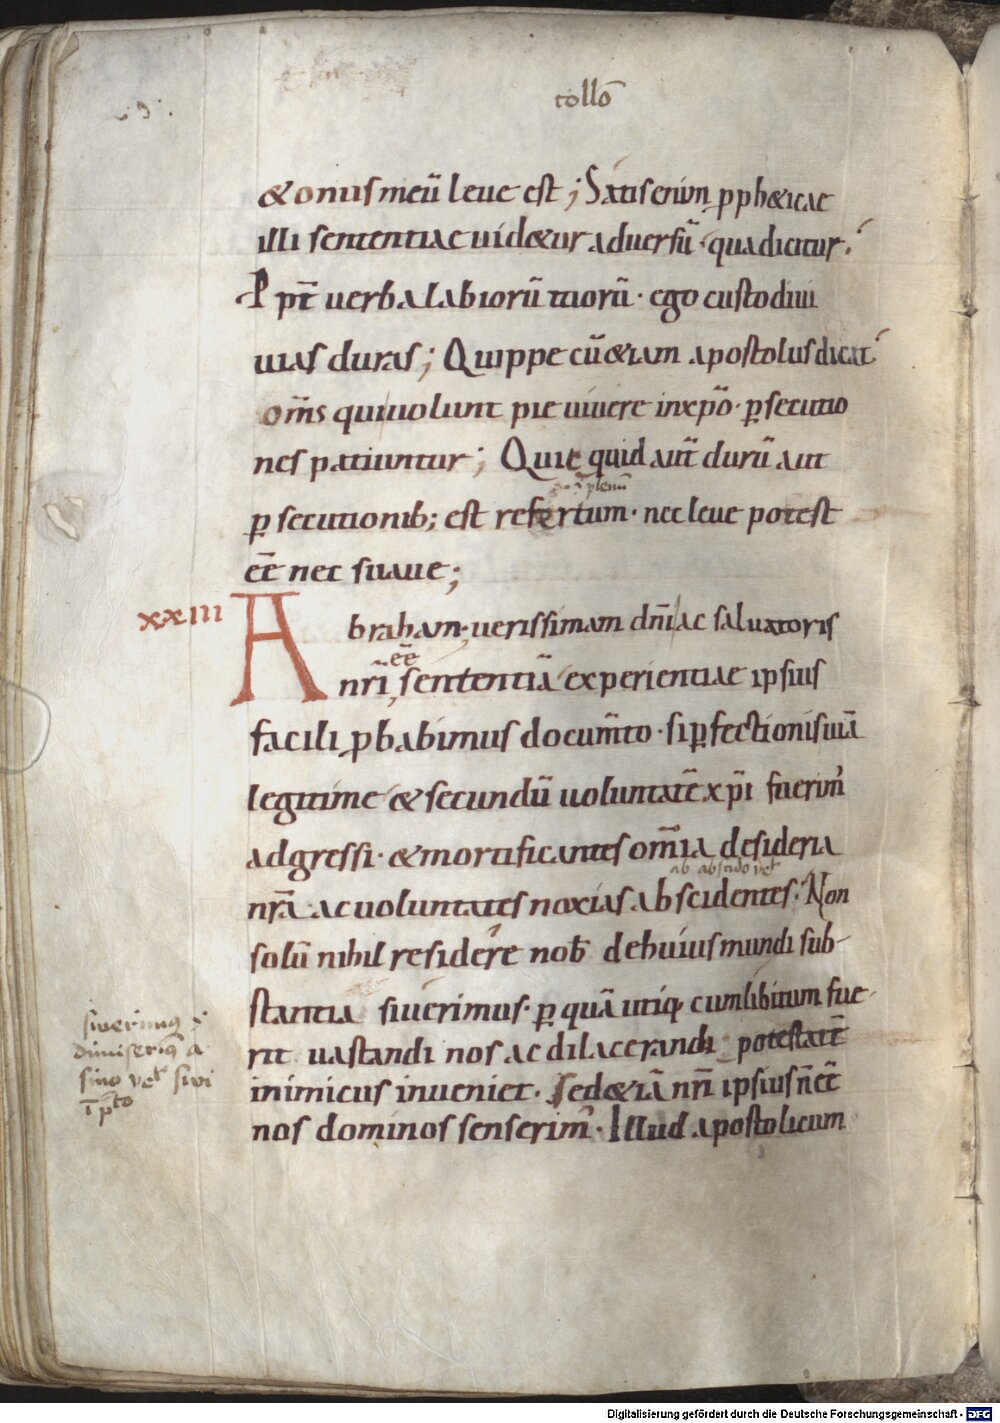 collõ
&onus meũ leue est; Satis enim pph&icae
illi sententiae uid&ur aduersũ· qua dicitur·
Ppt̃ uerba labiorũ tuorũ· ego custodiui
uias duras; Quippe cũ&iam apostolus dicat
om̃s qui uolunt pie uiuere in xp̃o· psecutio
nes patiuntur; Quicquid aut̃ durũ aut
plenũ
psecutionib; est refertum· nec leue potest
eẽ nec suaue;
xxiii
Abraham· uerissimam dñi ac saluatoris
eẽ
nr̃i sententiã experientiae ipsius
facili pbabimus docum̃to· si pfectionis uiã
legitime & secundũ uoluntatẽ xp̃i fuerim᾽
adgressi· & mortificantes om̃ia desideria
ab abscido vet
nr̃a· ac uoluntates noxias abscidentes· Non
solũ nihil residere nob̃ de huius mundi sub-
stantia siuerimus· p quã utiq; cum libitum fue-
rit uastandi nos ac dilacerandi potestatẽ
siverimus
dimiserimus a
sino vet sivi
ĩ p̃to
inimicus inueniet· sed&iã nñ ipsius ñ eẽ
nos dominos senserim᾽· Illud apostolicum
Digitalisierung gefördert durch die Deutsche Forschungsgemeinschaft - DFG